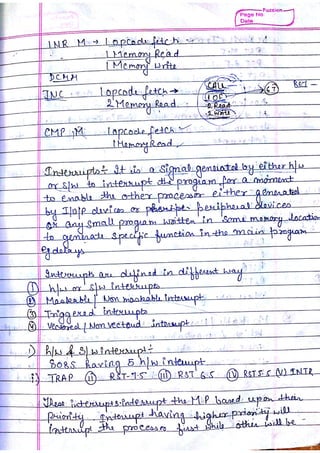 Fussion
Page No
Date
INR M → 1 opcode fetch
1 Memory Read
1 Memory Write
DCR M
JNC 1 opcode fetch → CALL → 67 RST -
2 Memory Read. 1 OF
2 READ
2 WRITE
CMP M 1 opcode fetch
1 Memory Read
Interrupts :- It is a signal generated by either h/w
or s/w to interrupt the program for a moment
to enable the other processor either generated
by I/O/P devices or peripheral devices
or any small program written in some memory location
to generate specific function in the main program
eg delays
Interrupts are defined in different way
① h/w or s/w interrupts
② Maskable / Non maskable interrupt
③ Triggered interrupts
④ Vectored / Non Vectored interrupt
1) h/w & s/w interrupt :-
8085 having 5 h/w interrupt
i) TRAP (ii) RST-7.5 (iii) RST 6.5 (iv) RST 5.5 (v) INTR
These interrupts interrupt the M.P based upon their
priority Interrupt having higher priority will
interrupt the processor first while other will be